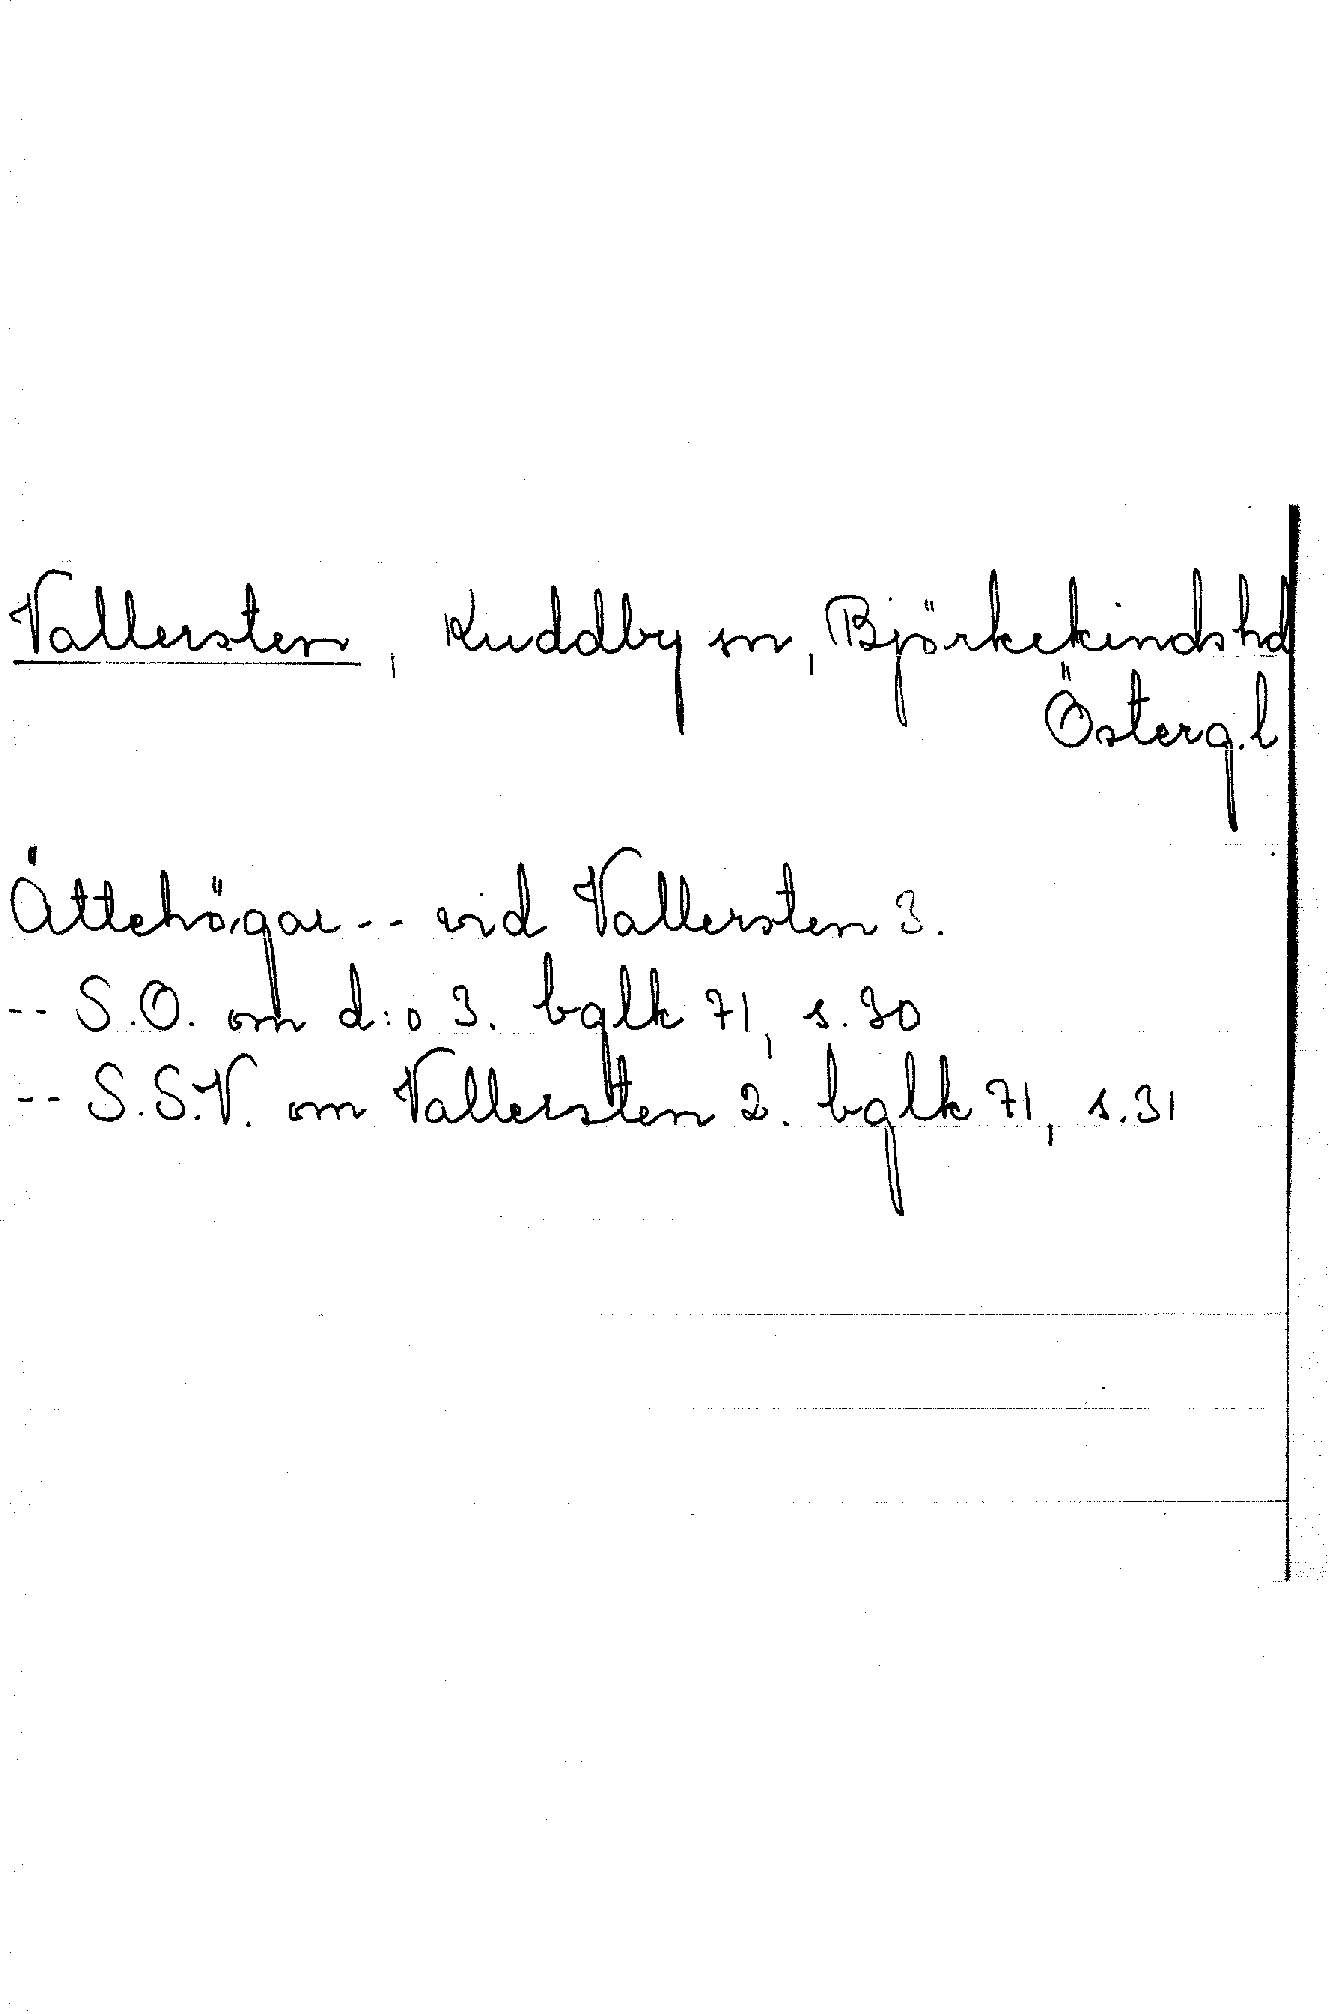 Vallersten, Kuddby sn, Björkekinds hd
Österg. l
Ättehögar -- vid Vallersten 3.
-- S.O. om d:o 3. bglk 71, s. 30
-- S.S.V. om Vallersten 2. bglk 71, s. 31